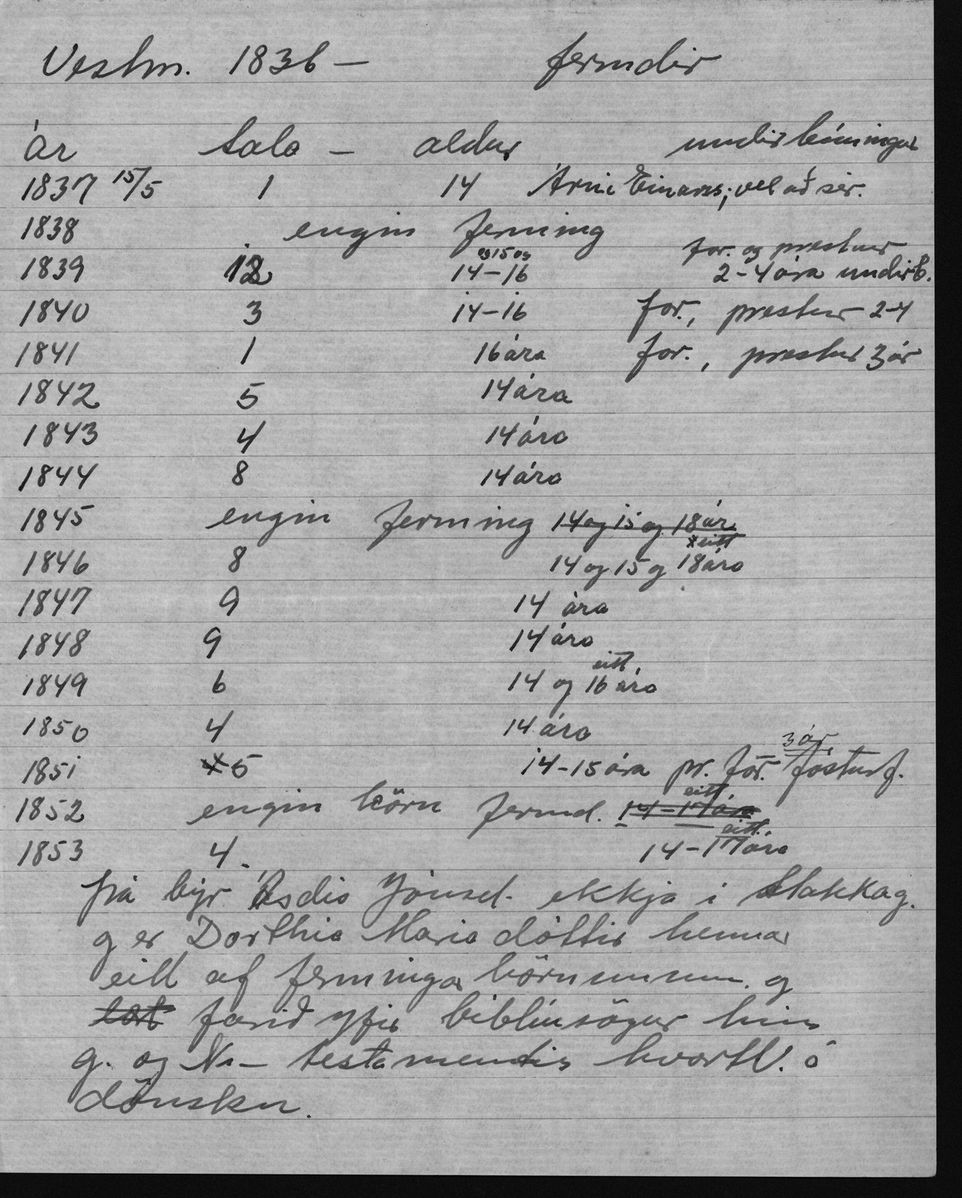 Vestm. 1836 – fermdir
ár tala – aldur undirbúningur
1837 15/5 1 14 Árni Einarss; vel að sér.
1838 engin ferming
1839 12 14–16 og 15 og for. og prestur 2–4 ára undirb.
1840 3 14–16 for., prestur 2–4
1841 1 16 ára for., prestur 3 ár
1842 5 14 ára
1843 4 14 ára
1844 8 14 ára
1845 engin ferming 14 og 15 og 18 ár
1846 8 14 og 15 og eitt 18 ára
1847 9 14 ára
1848 9 14 ára
1849 6 14 og eitt 16 ára
1850 4 14 ára
1851 5 14–15 ára pr. for. 3 ár fósturf.
1852 engin börn fermd. 14–17 ára eitt
1853 4. 14–17 ára eitt
þá býr Ásdís Jónsd. ekkja í Stakkag.
og er Dorthia Maria dóttir hennar
eitt af fermingarbörnunum og
farið yfir biblíusögur hins
g. og N– testamentis hvortv. á
dönsku.